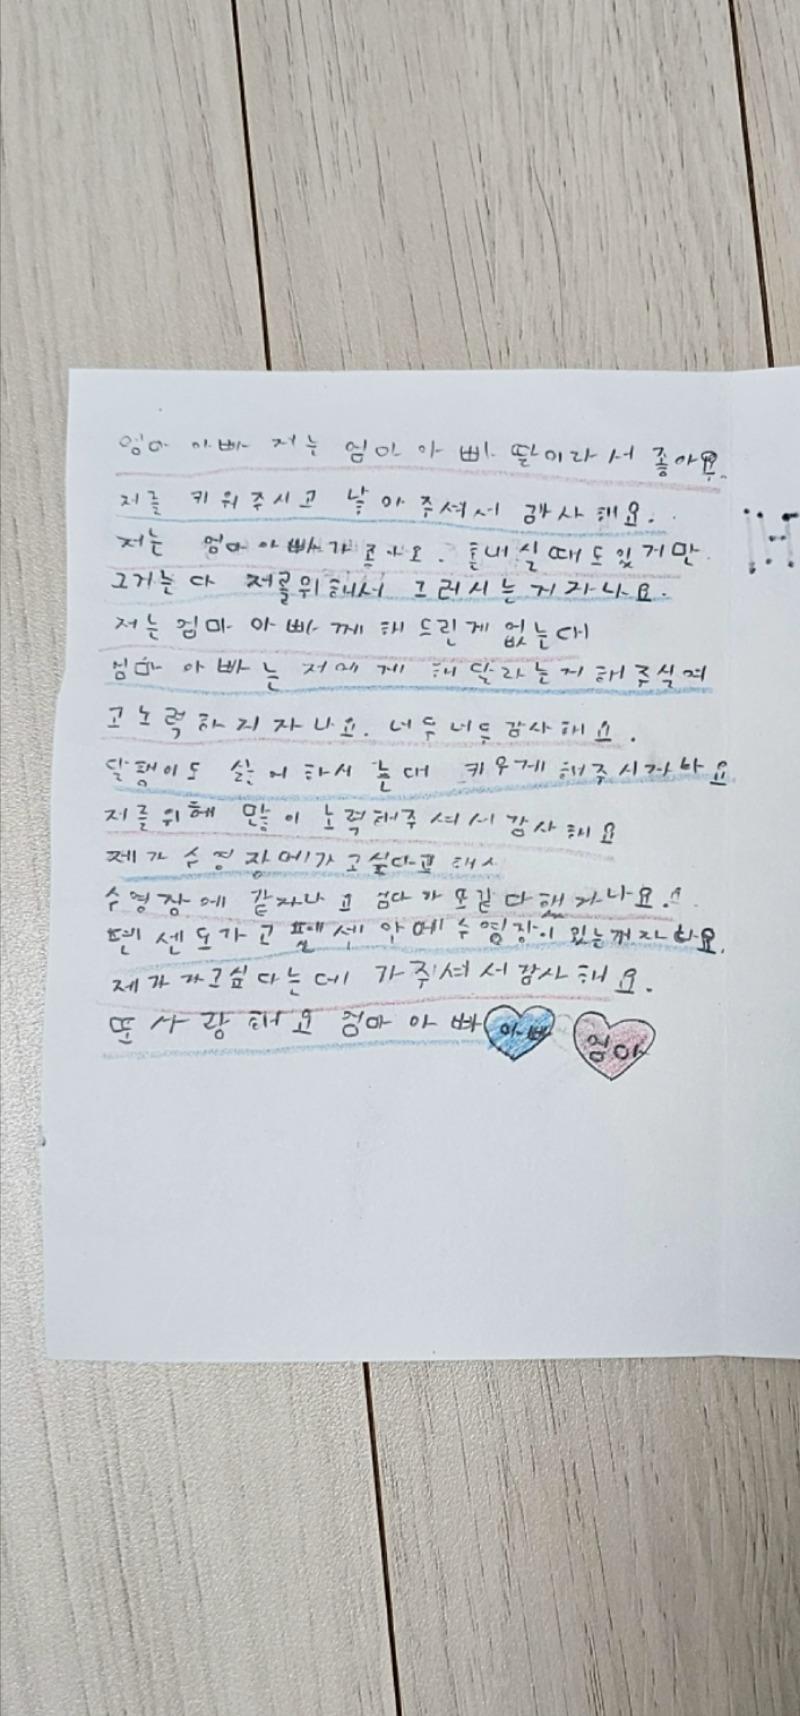 엄마 아빠 저는 엄마 아빠 딸이라서 좋아요.
저를 키워주시고 낳아주셔서 감사해요.
저는 엄마아빠가 좋아요. 혼내실때도있거만
그거는다 저를위해서 그러시는거자나요.
저는엄마 아빠께해드린게 없는대
엄마아빠는 저에게 해달라는거해주식여
고노력하지자나요. 너무너무감사해요.
달팽이도 싫어하시는대 키우게해주시자나요
저를위해 많이노력해주셔서감사해요
제가수영장에가고싶다고해서
수영장에 같자나고 엄다가또같다해자나요.
펜센도가고펜센안에수영장이있는거자나요.
제가가고싶다는데 가주셔서감사해요.
또사랑해요엄마아빠 아빠 엄마